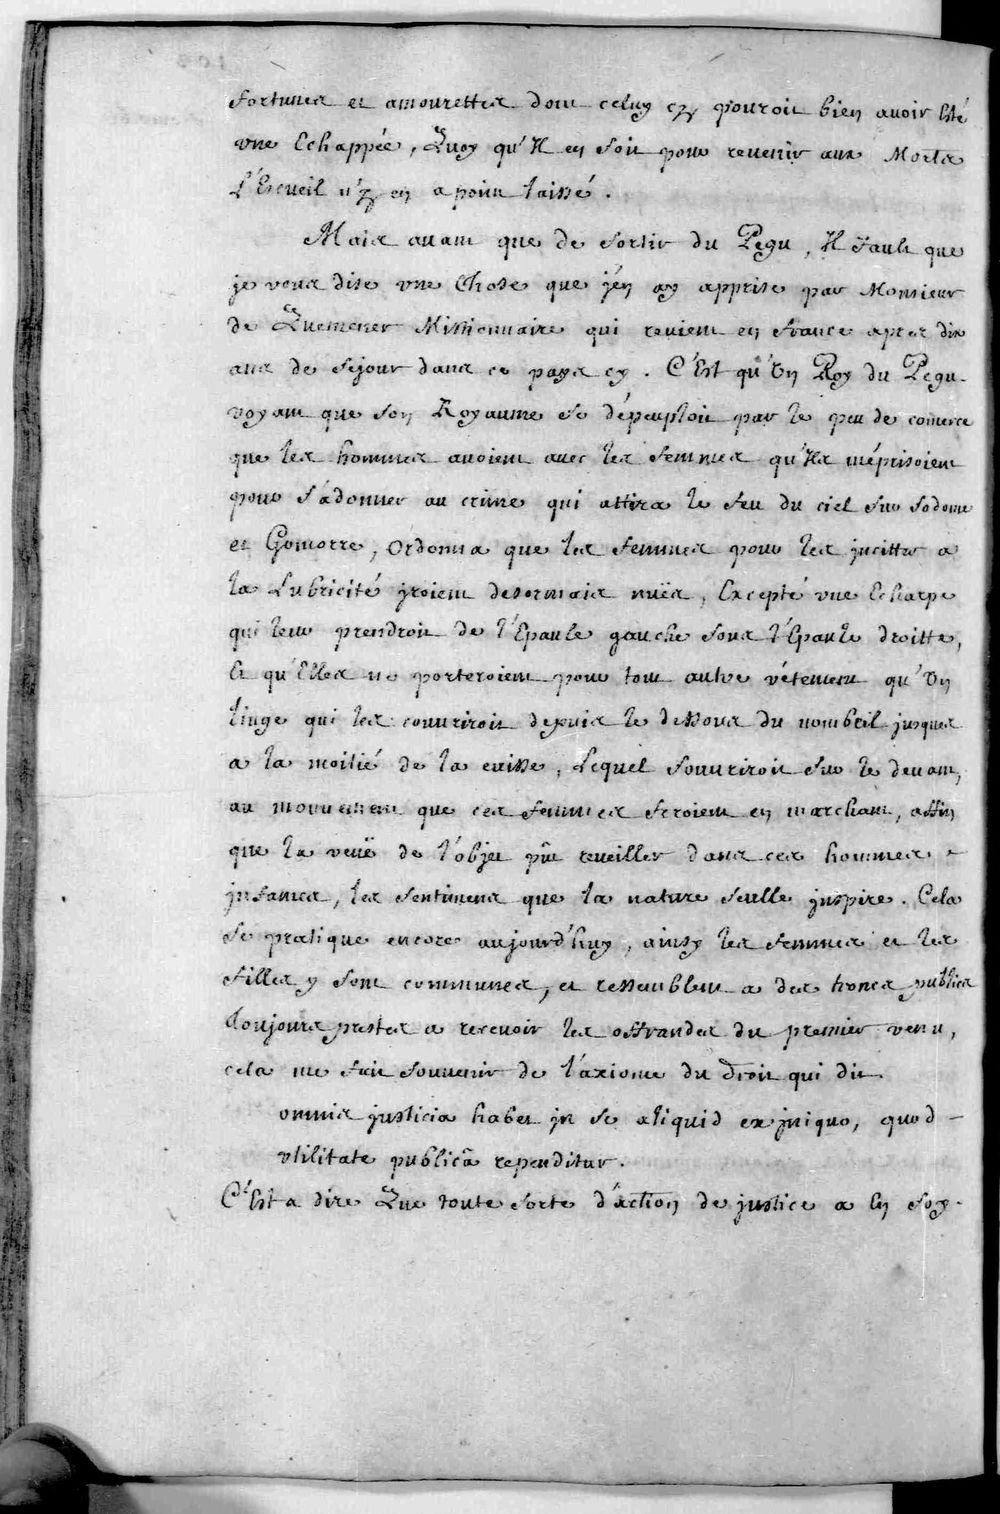 fortunes et amourettes dont celuy cy pouroit bien avoir Esté
vne Echappée, Quoy qu'Il en soit pour revenir aux Morts
L'Ecueil n'y en a point laissé.
Mais avant que de sortir du Pegu, Il faut que
je vous dise vne Chose que j'en ay apprise par Monsieur
de Quemener Missionnaire qui revient en france apres dix
ans de sejour dans ce pays cy. C'Est qu'Vn Roy du Pegu
voyant que son Royaume se dépeuploit par le peu de comerce
que les hommes avoient avec les femmes qu'Ils méprisoient
pour s'adonner au crime qui attira le feu du ciel sur sodome
et Gomorre, Ordonna que les femmes pour les jncitter a
la Lubricité jroient desormais nuës, Excepté vne Echarpe
qui leur prendroit de l'Epaule gauche sous l'Epaule droitte,
Et qu'Elles ne porteroient pour tout autre vétement qu'Vn
linge qui les couvriroit depuis le dessous du nombril jusques
a la moitié de la cuisse, Lequel souvriroit sur le devant,
au mouvement que ces femmes feroient en marchant, affin
que la veuë de l'objet pût reveiller dans ces hommes
jnfames, les sentimens que la nature seulle jnspire. Cela
se pratique encore aujourd'huy, ainsy les femmes et les
filles y sont communes, et ressemblent a des troncs publics
toujours prests a recevoir les offrandes du premier venu,
cela me fait souvenir de l'axiome du droit qui dit
omnis justicia habet jn se aliquid ex jniquo, quod
vtilitate publicâ rependitur.
C'Est a dire Que toute sorte d'action de justice a En soy